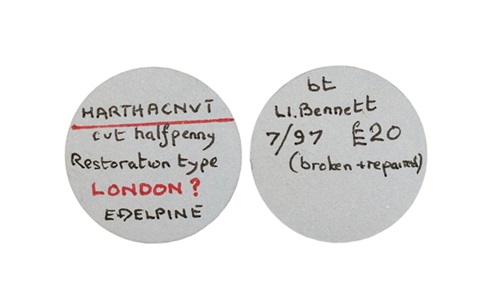 HARTHACNVT
cut halfpenny
Restoration type
LONDON?
EÐELPINE
bt
Ll. Bennett
7/97 £20
(broken + repaired)